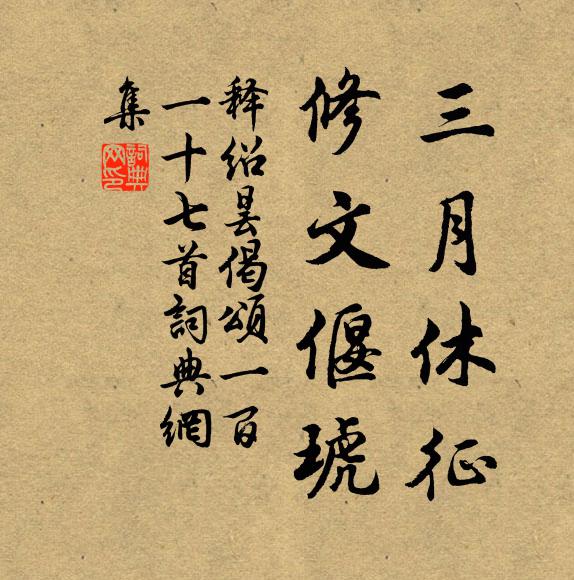 三月休征
修文偃琥
释紹昙偈頌一百
一十七首詞典網
集
詞典网印